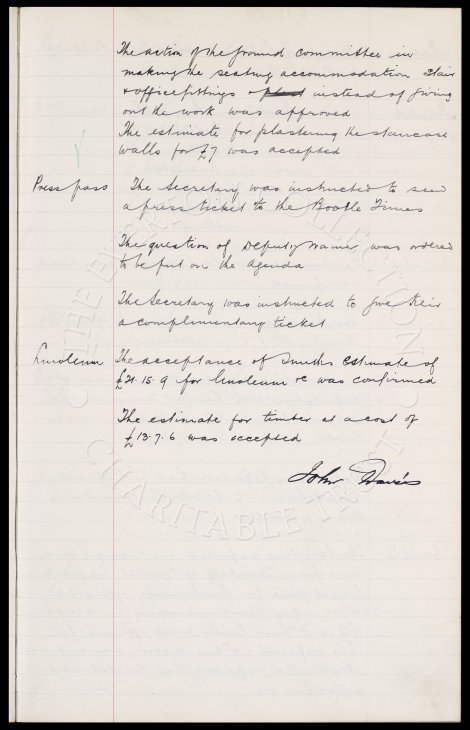 The action of the Ground Committee in
making the seating accommodation stair
& office fittings instead of giving
out the work was approved
The estimate for plastering the staircase
walls for £7 was accepted
Press pass The Secretary was instructed to send
a press ticket to the Bootle Times
The question of Deputy was ordered
to be put on the Agenda
The Secretary was instructed to give
a complimentary ticket
Linoleum The acceptance of Smiths estimate of
£21.15.9 for linoleum &c was confirmed
The estimate for timber at a cost of
£13.7.6 was accepted
John Davies
THE EVERTON COLLECTION
CHARITABLE TRUST